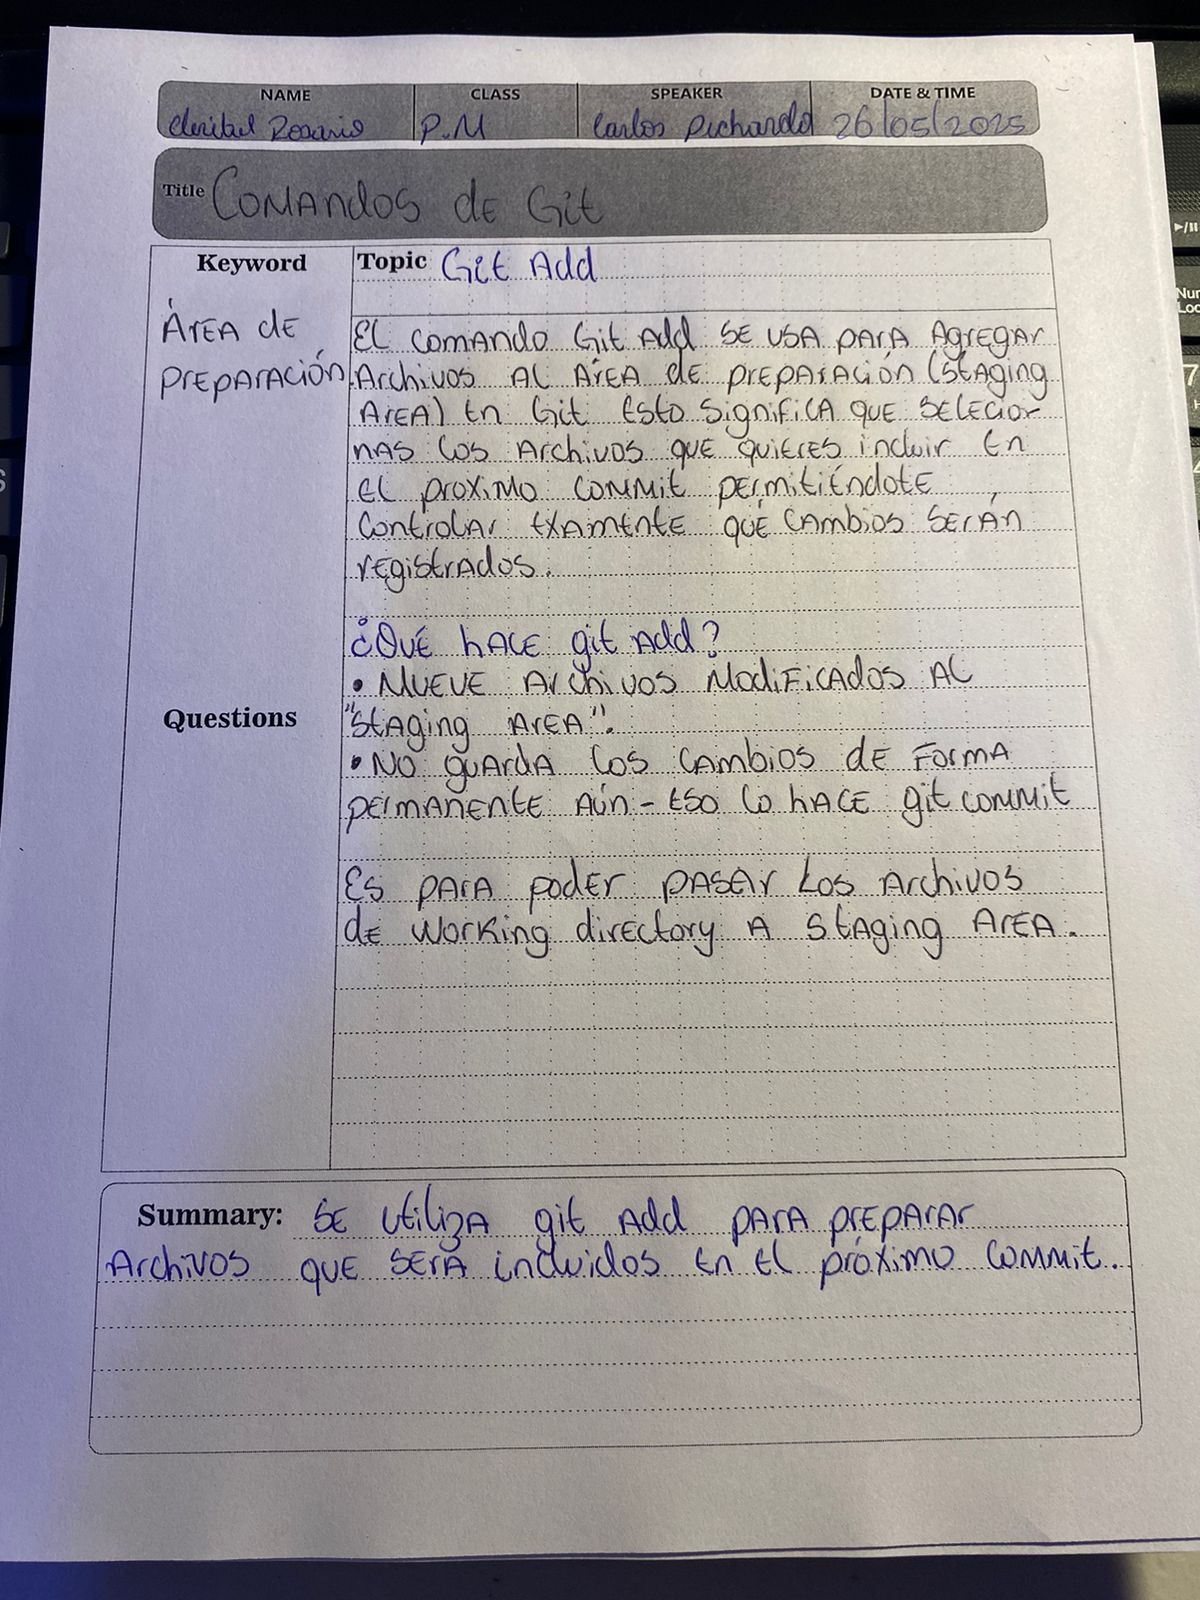 NAME CLASS SPEAKER DATE & TIME
Rosario P.M Carlos Pichardo 26/05/2025
Title Comandos de Git
Keyword Topic Git Add
Área de
preparación
El comando Git Add se usa para Agregar
Archivos al Área de preparación (staging
Area) en Git. Esto significa que selecior-
nas los Archivos que quieres incluir en
el proximo commit permitiéndote
controlar examente qué cambios serán
registrados.
¿Qué hace git add?
• Mueve Archivos modificados al
"staging Area".
Questions
• No guarda los cambios de forma
permanente aún - eso lo hace git commit
Es para poder pasar los Archivos
de working directory a staging Area.
Summary: Se utiliza git add para preparar
Archivos que será incluidos en el próximo commit.
Num
Loc
7